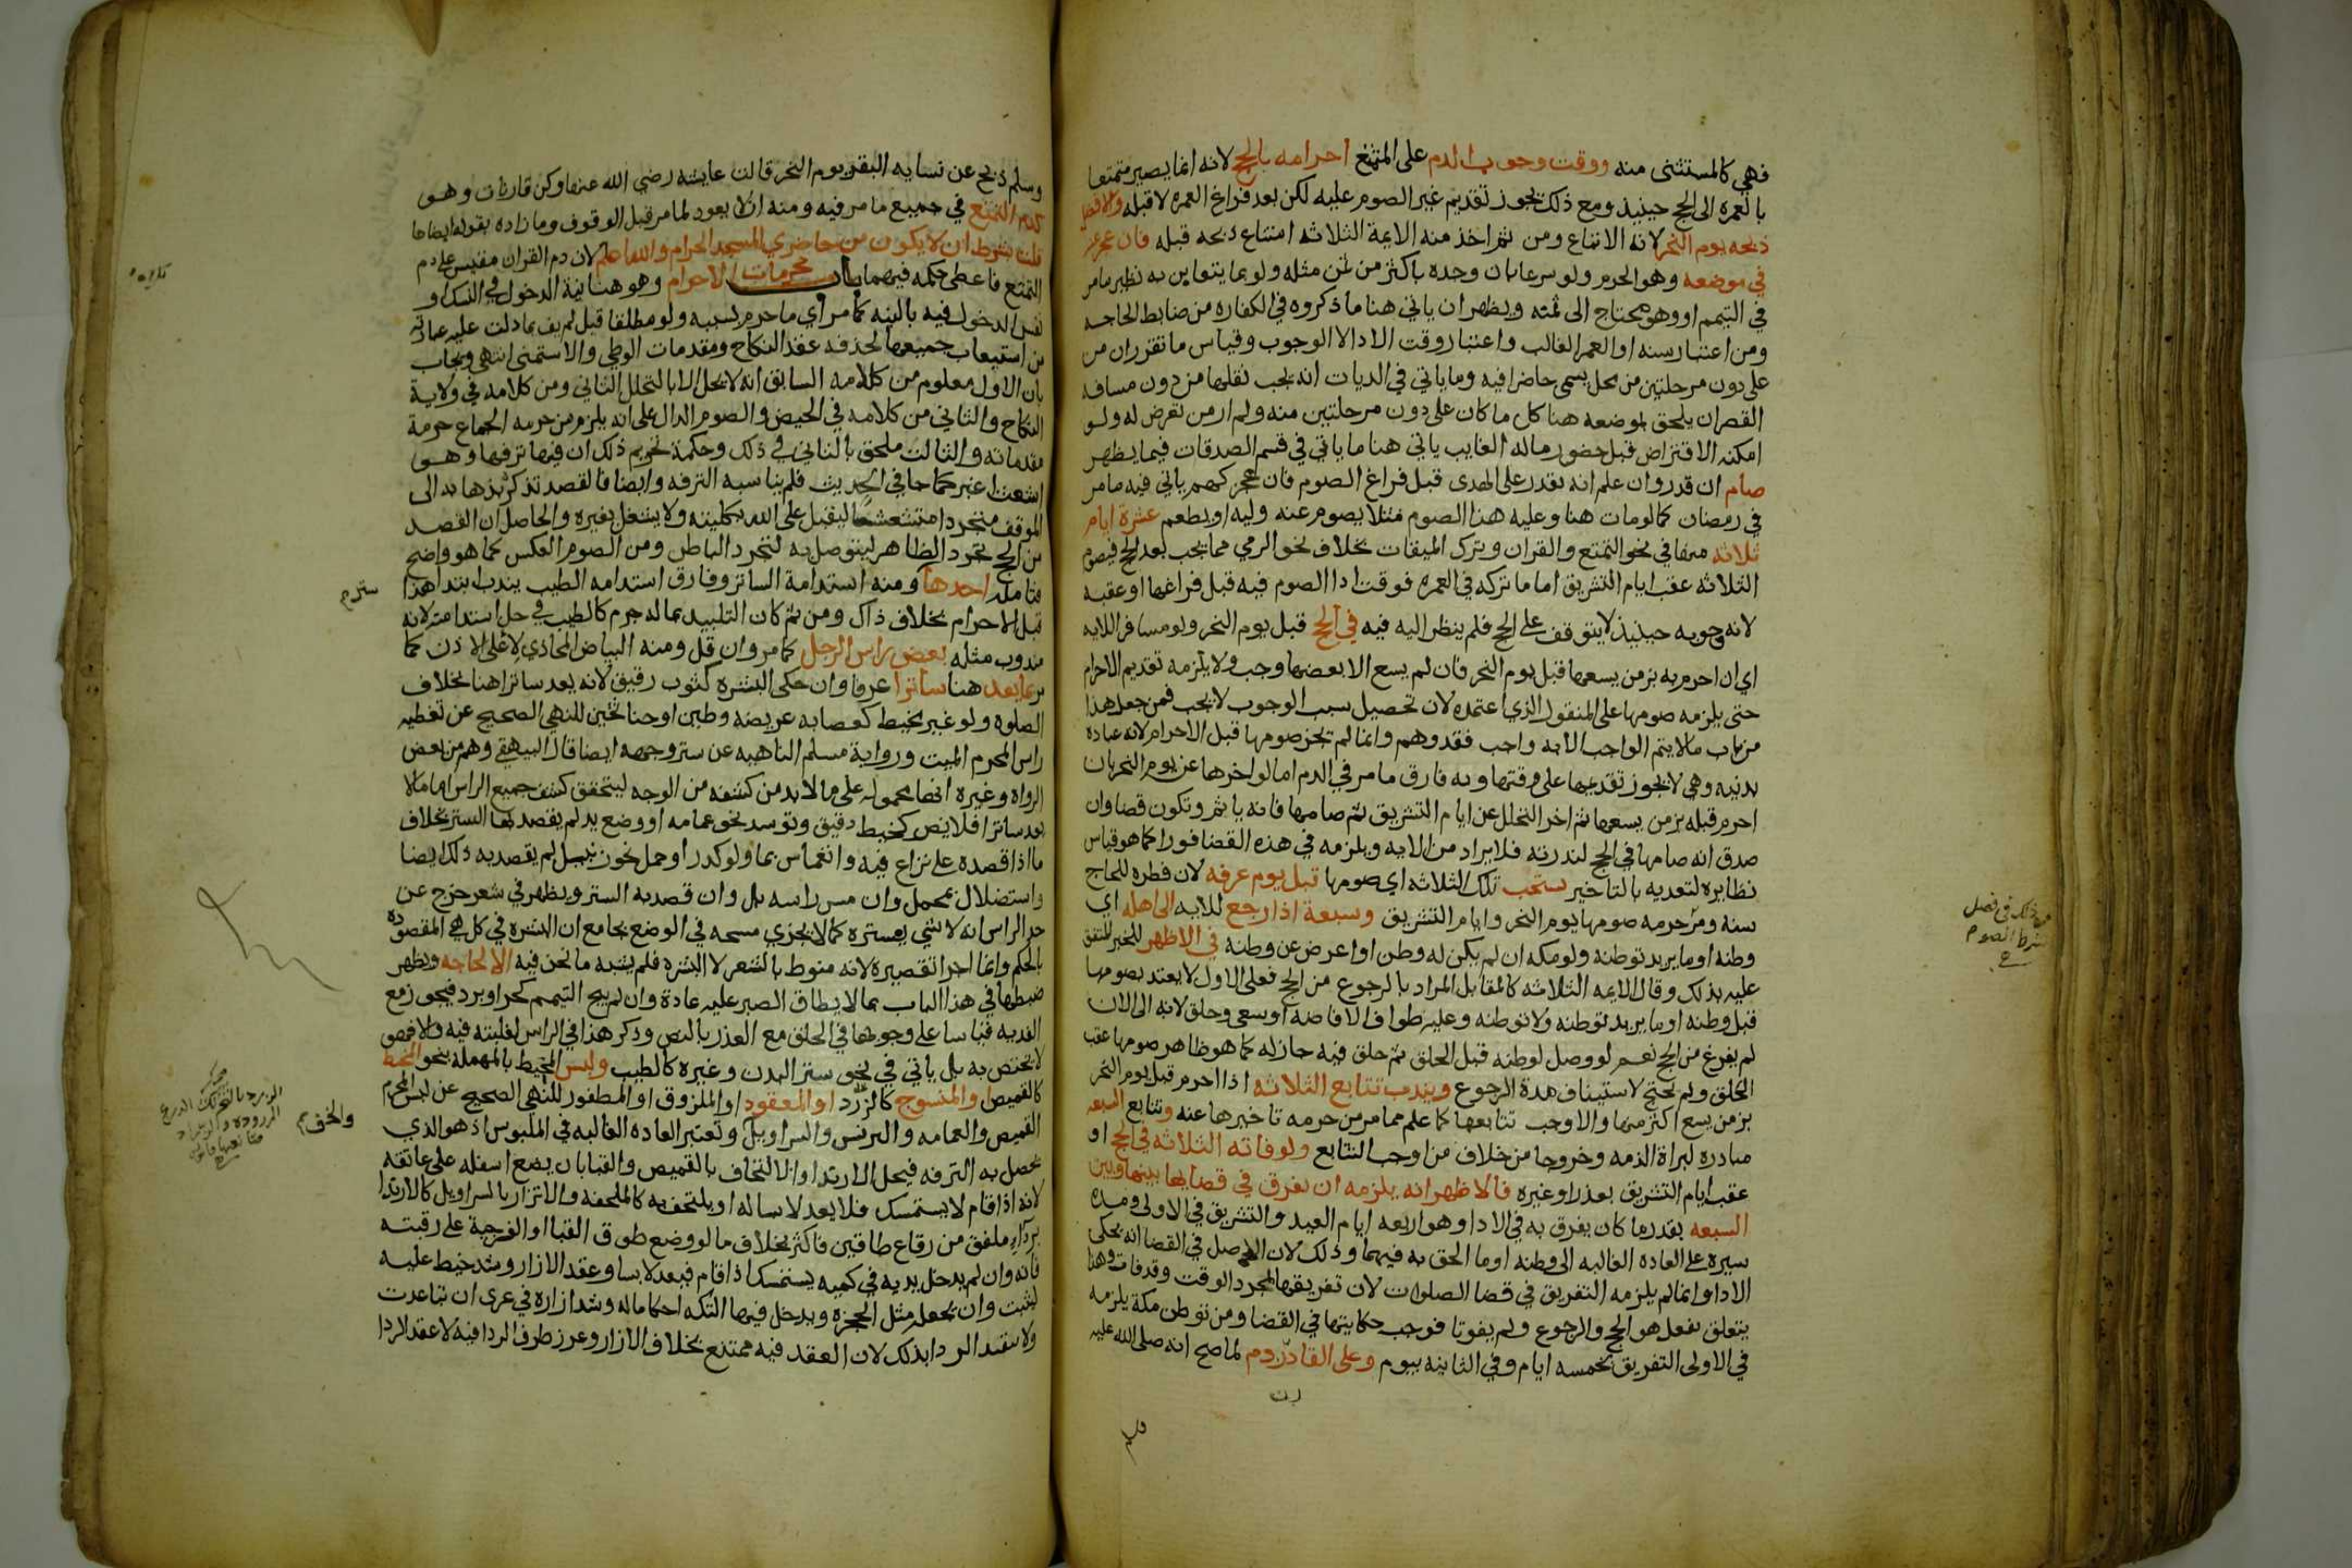 فهي كالمستثنى منه ووقت وجوب الدم على المتمتع احرامه بالحج لانه انما يصير متمتعا
بالعمره الى الحج حينيذ ومع ذلك يجوز تقديم غير الصوم عليه لكن بعد فراغ العمره لا قبله والافضل
ذبحه يوم النحر لانه الاتباع ومن ثم اخذ منه الايمة الثلاثه امتناع ذبحه قبله فان عجز عنه
في موضعه وهو الحرم ولو شرعا بان وجده باكثر من ثمن مثله ولو بما يتغابن به نظير ما مر
في التيمم او وهو محتاج الى ثمنه ويظهر ان ياتي هنا ما ذكروه في الكفاره من ضابط الحاجه
ومن اعتبار سنه او العمر الغالب واعتبار وقت الادا لا الوجوب وقياس ما تقرر ان من
على دون مرحلتين من محل يسمى حاضرا فيه وما ياتي في الديات انه يجب نقلها من دون مسافه
القصر ان يلحق بموضعه هنا كل ما كان على دون مرحلتين منه ولم ار من تعرض له ولو
امكنه الاقتراض قبل حضور ماله الغايب ياتي هنا ما ياتي في قسم الصدقات فيما يظهر
صام ان قدر وان علم انه يقدر على الهدى قبل فراغ الصوم فان عجز كهم ياتي فيه ما مر
في رمضان كما لو مات هنا وعليه هذا الصوم مثلا يصوم عنه وليه او يطعم عشرة ايام
ثلاثه منها في نحو التمتع والقران وترك الميقات بخلاف نحو الرمي مما يجب بعد الحج فيصوم
الثلاثه عقب ايام التشريق اما ما تركه في العمره فوقت ادا الصوم فيه قبل فراغها او عقبه
لانه وجوبه حينيذ لا يتوقف على الحج فلم ينظر اليه فيه في الحج قبل يوم النحر ولو مسافر اللايه
اي ان احرم به بزمن يسعها قبل يوم النحر فان لم يسع الا بعضها وجب ولا يلزمه تقديم الاحرام
حتى يلزمه صومها على المنقول الذي اعتمده لان تحصيل سبب الوجوب لا يجب فمن جعل هذا
من باب ما لا يتم الواجب الا به واجب فقد وهم وانما لم يجز صومها قبل الاحرام لانه عباده
بدنيه وهي لا يجوز تقديمها على وقتها وبه فارق ما مر في الدم اما لو اخرها عن يوم النحر بان
احرم قبله بزمن يسعها ثم اخر التحلل عن ايام التشريق ثم صامها فانه ياثم وتكون قضا وان
صدق انه صامها في الحج لندرته فلا يراد من الايه ويلزمه في هذه القضا فورا كما هو قياس
نظايره لتعديه بالتاخير يستحب تلك الثلاثه اي صومها قبل يوم عرفه لان فطره للحاج
سنه ومر حرمه صومها يوم النحر وايام التشريق وسبعة اذا رجع للايه الى اهله اي
وطنه او ما يريد توطنه ولو مكه ان لم يكن له وطن او اعرض عن وطنه في الاظهر للخبر المتفق
عليه بذلك وقال الايمه الثلاثه كالمقابل المراد بالرجوع من الحج فعلى الاول لا يعتد بصومها
قبل وطنه او ما يريد توطنه ولا توطنه وعليه طواف الافاضه او سعى وحلق لانه الى الان
لم يفرغ من الحج نعم لو وصل لوطنه قبل الحلق ثم حلق فيه جاز له كما هو ظاهر صومها عقب
الحلق ولم يحتج لاستيناف مدة الرجوع ويندب تتابع الثلاثه اذا احرم قبل يوم النحر
بزمن يسع اكثر منها والا وجب تتابعها كما علم مما مر من حرمه تاخيرها عنه وتتابع السبعه
مبادره لبراة الذمه وخروجا من خلاف من اوجب التتابع ولو فاته الثلاثه في الحج او
عقب ايام التشريق بعذر او غيره فالاظهر انه يلزمه ان يفرق في قضايها بينها وبين
السبعه بقدر ما كان يفرق به في الادا وهو اربعه ايام العيد والتشريق في الاولى ومده
سيره على العاده الغالبه الى وطنه او ما الحق به فيهما وذلك لان الاصل في القضا انه يحكى
الادا وانما لم يلزمه التفريق في قضا الصلوات لان تفريقها لمجرد الوقت وقد فات وهذا
يتعلق بفعل هو الحج والرجوع ولم يفوتا فوجب حكايتها في القضا ومن توطن مكة يلزمه
في الاولى التفريق بخمسه ايام وفي الثانيه بيوم وعلى القارن دم لما صح انه صلى الله عليه
وسلم ذبح عن نسايه البقر يوم النحر قالت عايشه رضي الله عنها وكن قارنات وهو
كدم التمتع في جميع ما مر فيه ومنه ان لا يعود لما مر قبل الوقوف وما زاده بقوله ايضاحا
قلت بشرط ان لا يكون من حاضري المسجد الحرام والله اعلم لان دم القران مقيس على دم
التمتع فاعطى حكمه فيهما باب محرمات الاحرام وهو هنا نية الدخول في النسك او
نفس الدخول فيه بالنيه كما مر اي ما حرم بسببه ولو مطلقا قبل لم يف بما دلت عليه عباته
من استيعاب جميعها لحذفه عقد النكاح ومقدمات الوطي والاستمنى انتهى ويجاب
بان الاول معلوم من كلامه السابق انه لا يحل الا بالتحلل الثاني ومن كلامه في ولاية
النكاح والثاني من كلامه في الحيض والصوم الدال على انه يلزم من حرمه الجماع حرمة
مقدماته والثالث ملحق بالثاني في ذلك وحكمة تحريم ذلك ان فيها ترفها وهو
اشعث اغبر كما جا في الحديث فلم يناسبه الترفه وايضا فالقصد تذكر بذهابه الى
الموقف متجردا متشعشعا ليقبل على الله بكليته ولا يشتغل بغيره والحاصل ان القصد
من الحج تجرد الظاهر ليتوصل به لتجرد الباطن ومن الصوم العكس كما هو واضح
فتامله احدها ومنه استدامة الساتر وفارق استدامه الطيب بندب ابتدا هذا
ستر م
قبل الاحرام بخلاف ذاك ومن ثم كان التلبيد بما له جرم كالطيب في حل استدامته لانه
مندوب مثله بعض راس الرجل كما مر وان قل ومنه البياض المحاذي لاعلى الاذن كما
مر بما يعد هنا ساترا عرفا وان حكى البشره كثوب رقيق لانه يعد ساترا هنا بخلاف
الصلوه ولو غير مخيط كعصابه عريضه وطين او حنا ثخين للنهي الصحيح عن تغطيه
راس المحرم الميت ورواية مسلم الناهيه عن ستر وجهه ايضا قال البيهقي وهم من بعض
الرواه وغيره انها محموله على ما لا بد من كشفه من الوجه ليتحقق كشف جميع الراس اما ما لا
يعد ساترا فلا يضر كخيط دقيق وتوسد نحو عمامه او وضع يد لم يقصد بها الستر بخلاف
ما اذا قصده على نزاع فيه وانغماس بما ولو كدر او حمل نحو زنبيل لم يقصد به ذلك ايضا
واستضلال بمحمل وان مس راسه بل وان قصد به الستر ويظهر في شعر خرج عن
حد الراس انه لا شي بستره كما لا يجزي مسحه في الوضع بجامع ان البشره في كل هي المقصوده
بالحكم وانما اجزا تقصيره لانه منوط بالشعر لا البشره فلم يشبه ما نحن فيه الا لحاجه ويظهر
ضبطها في هذا الباب بما لا يطاق الصبر عليه عادة وان لم يبح التيمم كحر او برد فيجوز مع
الفديه قياسا على وجوبها في الحلق مع العذر بالنص وذكر هذا في الراس لغلبته فيه والا فهو
لا يختص به بل ياتي في نحو ستر البدن وغيره كالطيب ولبس المخيط بالمهمله بنحو المخيط
كالقميص او المنسوج كالزرد او المعقود او الملزوق او المظفور للنهي الصحيح عن لبس المحرم
والخف م
القميص والعمامه والبرنس والسراويل وتعتبر العاده الغالبه في الملبوس اذ هو الذي
يحصل به الترفه فيحل الارتدا والالتحاف بالقميص والقبا بان يضع اسفله على عاتقه
لانه اذا قام لا يستمسك فلا يعد لابسا له او يلتحف به كالملحفه والاتزار بالسراويل كالارتدا
بردآء ملفق من رقاع طاقين فاكثر بخلاف ما لو وضع طوق القبا او الفرجية على رقبته
فانه وان لم يدخل يديه في كميه يستمسك اذا قام فيعد لابسا وعقد الازار وشد خيط عليه
ليثبت وان يجعل مثل الحجزه ويدخل فيها التكه احكاما له وشد ازاره في عرى ان تباعدت
ولا يتقيد الردا بذلك لان العقد فيه ممتنع بخلاف الازار وغرز طرف الردا فيه لا عقد الردا